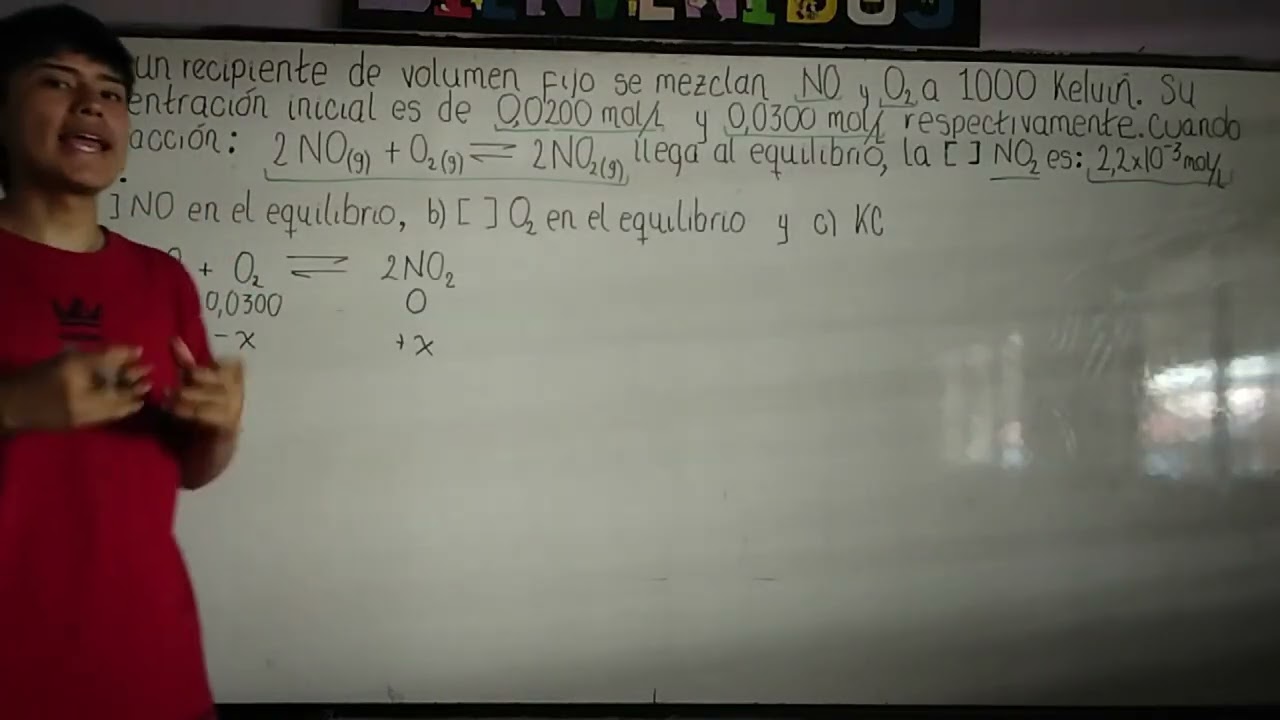 BIENVENIDOS
un recipiente de volumen Fijo se mezclan NO y O₂ a 1000 Kelvin. Su
entración inicial es de 0,0200 mol/L y 0,0300 mol/L respectivamente. Cuando
acción: 2NO(g) + O₂(g) ⇌ 2NO₂(g), llega al equilibrio, la [ ] NO₂ es: 2,2x10⁻³ mol/L
] NO en el equilibrio, b) [ ] O₂ en el equilibrio y c) KC
+ O₂ ⇌ 2NO₂
0,0300 0
-x +x